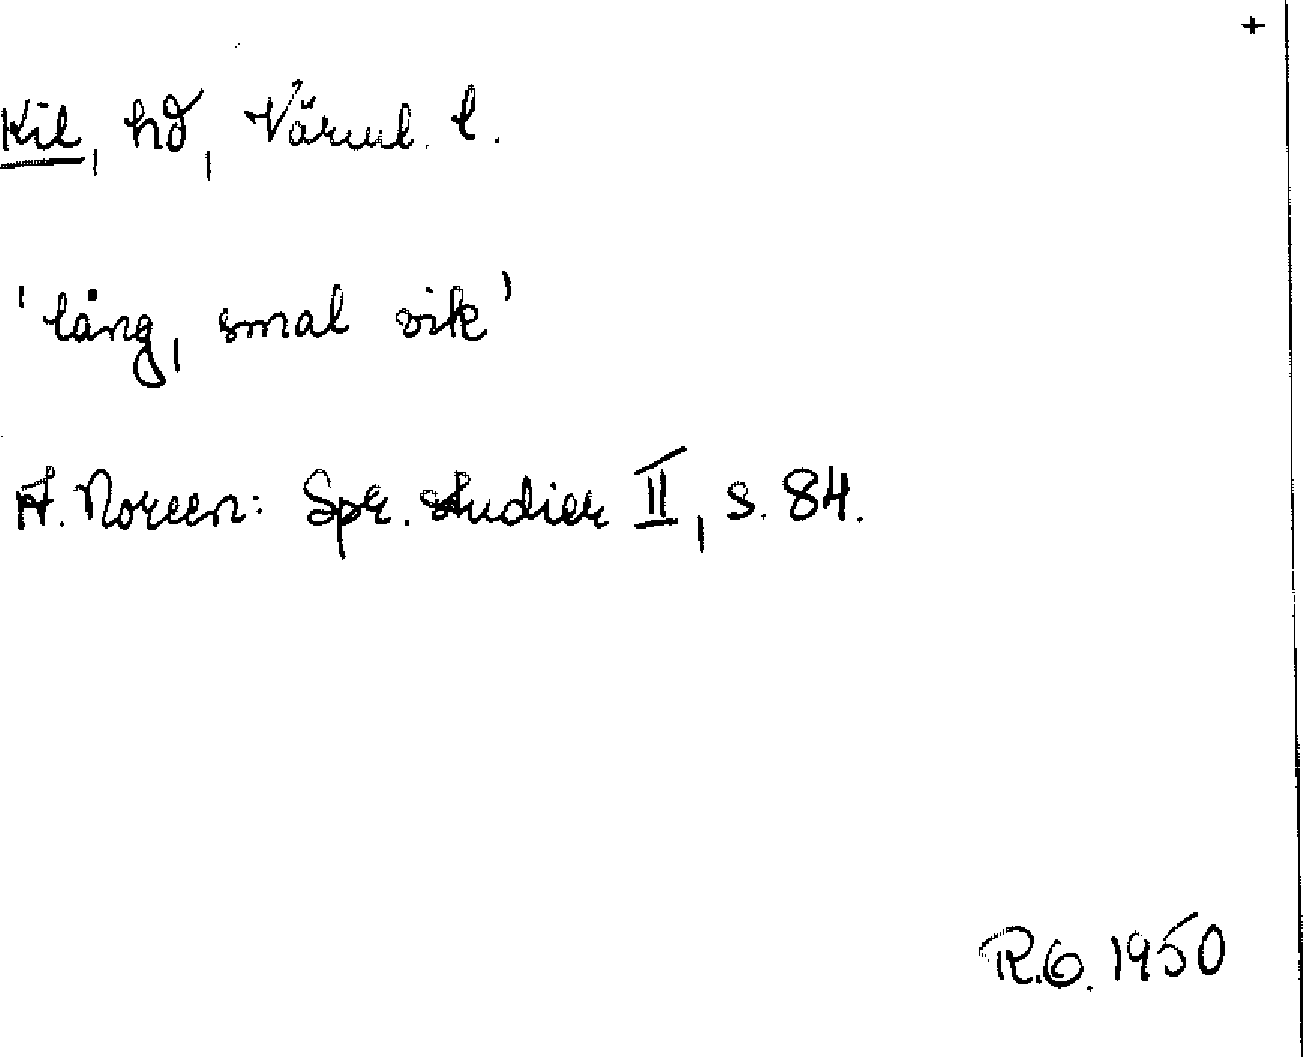 +
Kil, hd, Värml. l.
'lång, smal vik'
A. Noreen: Spr. studier II, s. 84.
R.G. 1950